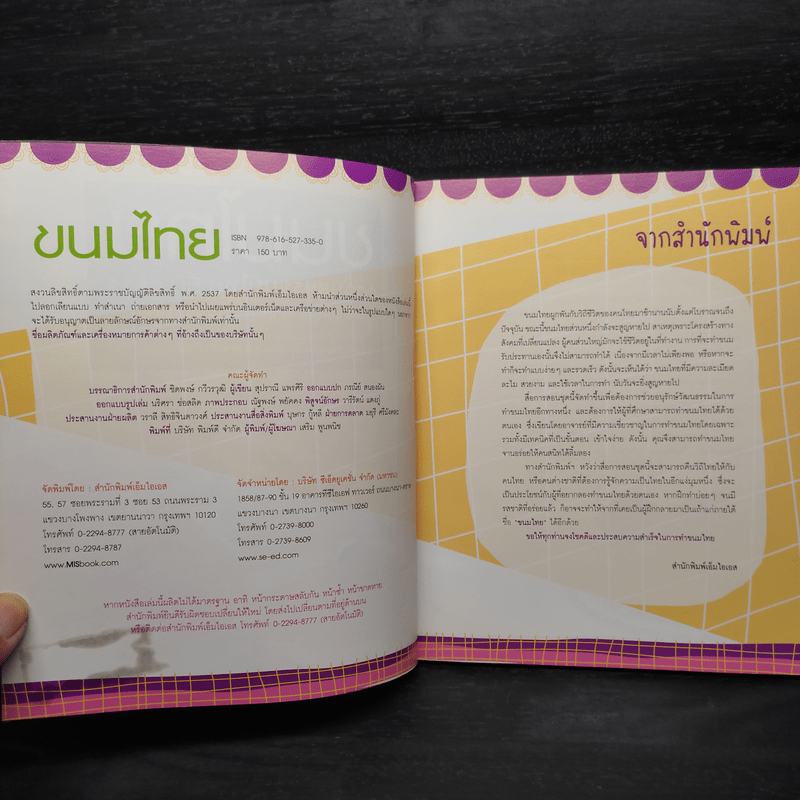 ขนมไทย
ISBN 978-616-527-335-0
ราคา 150 บาท
สงวนลิขสิทธิ์ตามพระราชบัญญัติลิขสิทธิ์ พ.ศ. 2537 โดยสำนักพิมพ์เอ็มไอเอส ห้ามนำส่วนหนึ่งส่วนใดของหนังสือเล่มนี้
ไปลอกเลียนแบบ ทำสำเนา ถ่ายเอกสาร หรือนำไปเผยแพร่บนอินเตอร์เน็ตและเครือข่ายต่างๆ ไม่ว่าจะในรูปแบบใดๆ นอกจาก
จะได้รับอนุญาตเป็นลายลักษณ์อักษรจากทางสำนักพิมพ์เท่านั้น
ชื่อผลิตภัณฑ์และเครื่องหมายการค้าต่างๆ ที่อ้างถึงเป็นของบริษัทนั้นๆ
คณะผู้จัดทำ
บรรณาธิการสำนักพิมพ์ ชิดพงษ์ กวีวรวุฒิ ผู้เขียน สุปราณี แพรศิริ ออกแบบปก ภรณีย์ สนองผัน
ออกแบบรูปเล่ม บริศรา ช่อสลิด ภาพประกอบ ณัฐพงษ์ พยัคคง พิสูจน์อักษร วารีรัตน์ แตงภู่
ประสานงานฝ่ายผลิต วราลี สิทธิจินดาวงศ์ ประสานงานสื่อสิ่งพิมพ์ บุษกร กู้หลี ฝ่ายการตลาด มยุรี ศรีมังคละ
พิมพ์ที่ บริษัท พิมพ์ดี จำกัด ผู้พิมพ์/ผู้โฆษณา เสริม พูนพนิช
จัดพิมพ์โดย : สำนักพิมพ์เอ็มไอเอส
55, 57 ซอยพระรามที่ 3 ซอย 53 ถนนพระราม 3
แขวงบางโพงพาง เขตยานนาวา กรุงเทพฯ 10120
โทรศัพท์ 0-2294-8777 (สายอัตโนมัติ)
โทรสาร 0-2294-8787
www.MISbook.com
จัดจำหน่ายโดย : บริษัท ซีเอ็ดยูเคชั่น จำกัด (มหาชน)
1858/87-90 ชั้น 19 อาคารทีซีไอเอฟ ทาวเวอร์ ถนนบางนา-ตราด
แขวงบางนา เขตบางนา กรุงเทพฯ 10260
โทรศัพท์ 0-2739-8000
โทรสาร 0-2739-8609
www.se-ed.com
หากหนังสือเล่มนี้ผลิตไม่ได้มาตรฐาน อาทิ หน้ากระดาษสลับกัน หน้าซ้ำ หน้าขาดหาย
สำนักพิมพ์ยินดีรับผิดชอบเปลี่ยนให้ใหม่ โดยส่งไปเปลี่ยนตามที่อยู่ด้านบน
หรือติดต่อสำนักพิมพ์เอ็มไอเอส โทรศัพท์ 0-2294-8777 (สายอัตโนมัติ)
จากสำนักพิมพ์
ขนมไทยผูกพันกับวิถีชีวิตของคนไทยมาช้านานนับตั้งแต่โบราณจนถึง
ปัจจุบัน ขณะนี้ขนมไทยส่วนหนึ่งกำลังจะสูญหายไป สาเหตุเพราะโครงสร้างทาง
สังคมที่เปลี่ยนแปลง ผู้คนส่วนใหญ่มักจะใช้ชีวิตอยู่ในที่ทำงาน การที่จะทำขนม
รับประทานเองนั้นจึงไม่สามารถทำได้ เนื่องจากมีเวลาไม่เพียงพอ หรือหากจะ
ทำก็จะทำแบบง่ายๆ และรวดเร็ว ดังนั้นจะเห็นได้ว่า ขนมไทยที่มีความละเอียด
ละไม สวยงาม และใช้เวลาในการทำ นับวันจะยิ่งสูญหายไป
สื่อการสอนชุดนี้จัดทำขึ้นเพื่อต้องการช่วยอนุรักษ์วัฒนธรรมในการ
ทำขนมไทยอีกทางหนึ่ง และต้องการให้ผู้ที่ศึกษาสามารถทำขนมไทยได้ด้วย
ตนเอง ซึ่งเขียนโดยอาจารย์ที่มีความเชี่ยวชาญในการทำขนมไทยโดยเฉพาะ
รวมทั้งมีเทคนิคที่เป็นขั้นตอน เข้าใจง่าย ดังนั้น คุณจึงสามารถทำขนมไทย
จานอร่อยให้คนสนิทได้ลิ้มลอง
ทางสำนักพิมพ์ฯ หวังว่าสื่อการสอนชุดนี้จะสามารถคืนวิถีไทยให้กับ
คนไทย หรือคนต่างชาติที่ต้องการรู้จักความเป็นไทยในอีกแง่มุมหนึ่ง ซึ่งจะ
เป็นประโยชน์กับผู้ที่อยากลองทำขนมไทยด้วยตนเอง หากฝึกทำบ่อยๆ จนมี
รสชาติที่อร่อยแล้ว ก็อาจจะทำให้จากที่เคยเป็นผู้ฝึกกลายมาเป็นเถ้าแก่ภายใต้
ชื่อ "ขนมไทย" ได้อีกด้วย
ขอให้ทุกท่านจงโชคดีและประสบความสำเร็จในการทำขนมไทย
สำนักพิมพ์เอ็มไอเอส